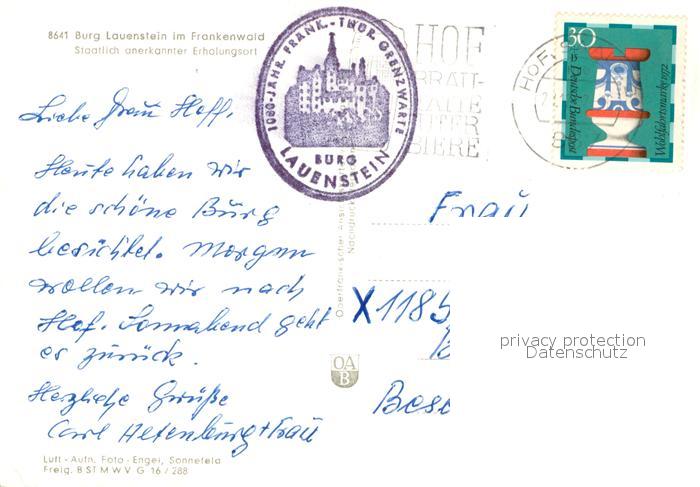 8641 Burg Lauenstein im Frankenwald
Staatlich anerkannter Erholungsort
1000-JÄHR. FRÄNK.-THÜR. GRENZWARTE
BURG
LAUENSTEIN
HOF
BIERE
HOF,
30
Deutsche Bundespost
Wohlfahrtsmarke 1972
Liebe Frau Hoff,
Heute haben wir
die schöne Burg
besichtet. Morgen
wollen wir nach
Hof. Sonnabend geht
es zurück.
Herzliche Grüße
Carl Hetenburg + Frau
Frau
X1185
Besc
OA
B
privacy protection
Datenschutz
Luft-Aufn. Foto-Engel, Sonnefeld
Freig. BSTMWV G 16/288